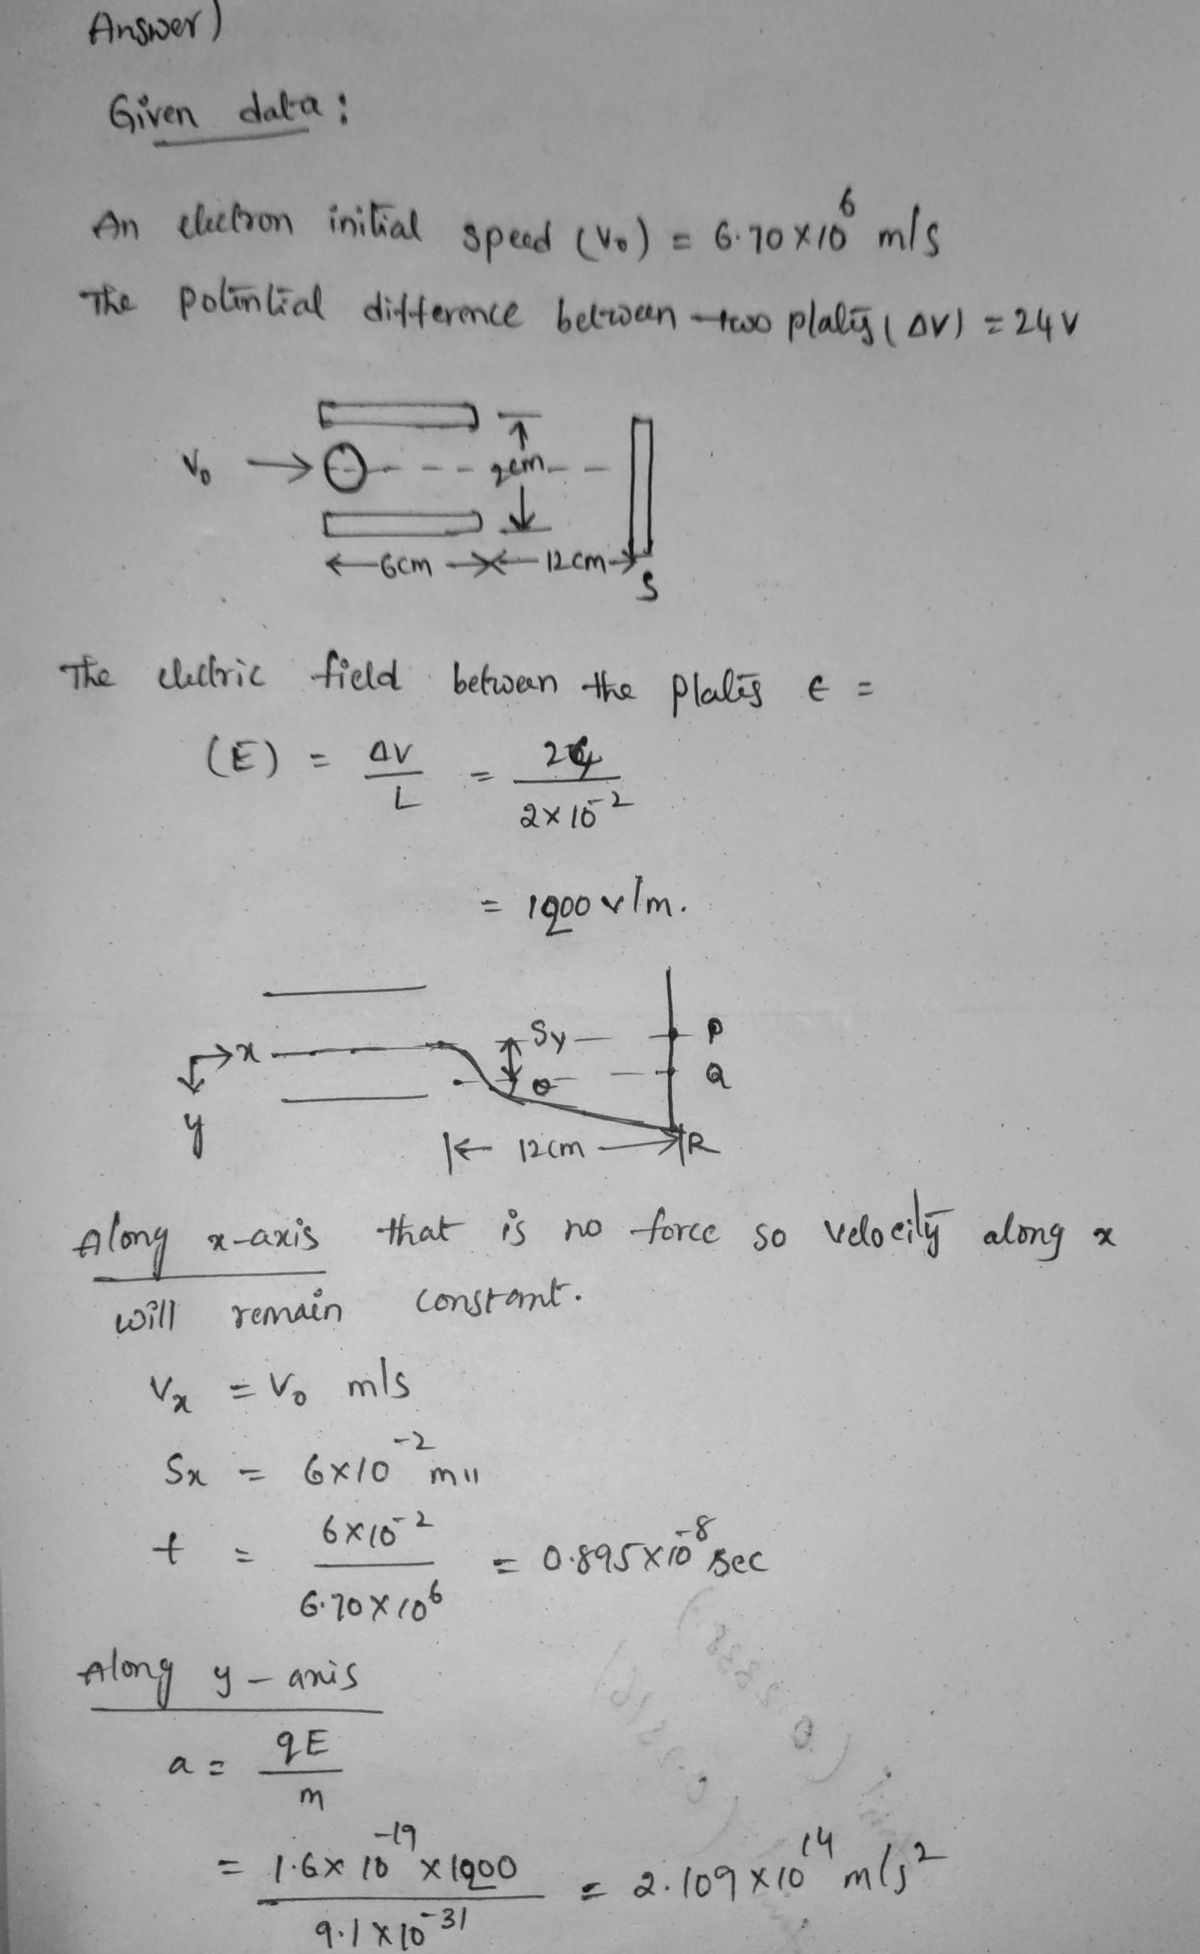 Answer)
Given data:
An electron initial speed (V₀) = 6.70 × 10⁶ m/s
The potential difference between two plates (ΔV) = 24 V
V₀
2cm
6cm
12cm
S
The electric field between the plates E =
(E) = ΔV/L = 24/2×10⁻²
= 1200 v/m.
x
y
Sy
θ
P
Q
12cm
R
Along x-axis that is no force so velocity along x
will remain constant.
Vx = V₀ m/s
Sx = 6×10⁻² m
t = 6×10⁻²/6.70×10⁶ = 0.895×10⁻⁸ sec
Along y-axis
a = qE/m
= 1.6×10⁻¹⁹×1200/9.1×10⁻³¹ = 2.109×10¹⁴ m/s²